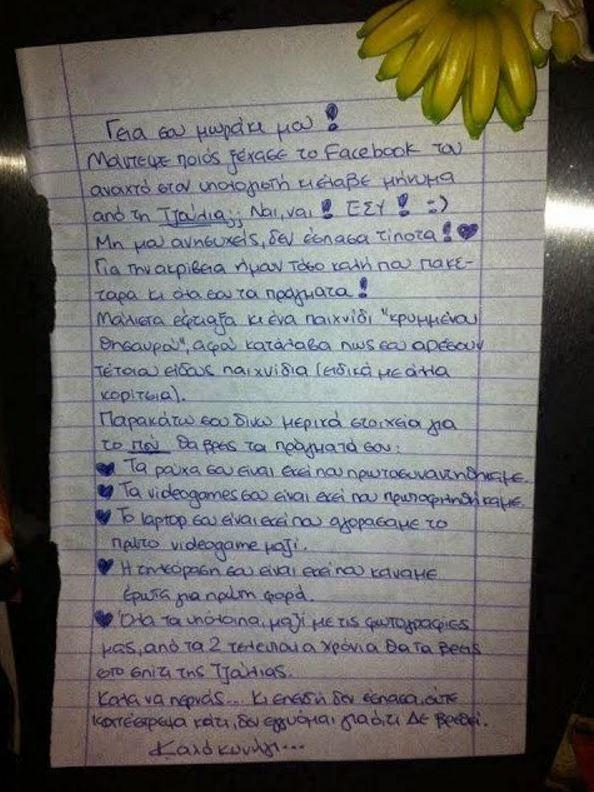 Γεια σου μωράκι μου!
Μάντεψε ποιός ξέχασε το Facebook του
ανοιχτό στον υπολογιστή κι έλαβε μήνυμα
από τη Τζούλια;; Ναι, ναι! ΕΣΥ! :)
Μη μου ανησυχείς, δεν έσπασα τίποτα! ♥
Για την ακρίβεια ήμουν τόσο καλή που πακε-
τάρα κι όλα σου τα πράγματα!
Μάλιστα έφτιαξα κι ένα παιχνίδι "κρυμμένου
θησαυρού", αφού κατάλαβα πως σου αρέσουν
τέτοιου είδους παιχνίδια (ειδικά με άλλα
κορίτσια).
Παρακάτω σου δίνω μερικά στοιχεία για
το που θα βρεις τα πράγματά σου:
♥ Τα ρούχα σου είναι εκεί που πρωτοσυναντηθήκαμε.
♥ Τα videogames σου είναι εκεί που πρωτοφιληθήκαμε.
♥ Το laptop σου είναι εκεί που αγοράσαμε το
πρώτο videogame μαζί.
♥ Η τηλεόραση σου είναι εκεί που κάναμε
έρωτα για πρώτη φορά.
♥ Όλα τα υπόλοιπα, μαζί με τις φωτογραφίες
μας, από τα 2 τελευταία χρόνια θα τα βρεις
στο σπίτι της Τζούλιας.
Καλά να περνάς... Κι επειδή δεν έσπασα, ούτε
κατέστρεψα κάτι, δεν εγγυόμαι για ό,τι ΔΕ βρεθεί.
Καλό κυνήγι...